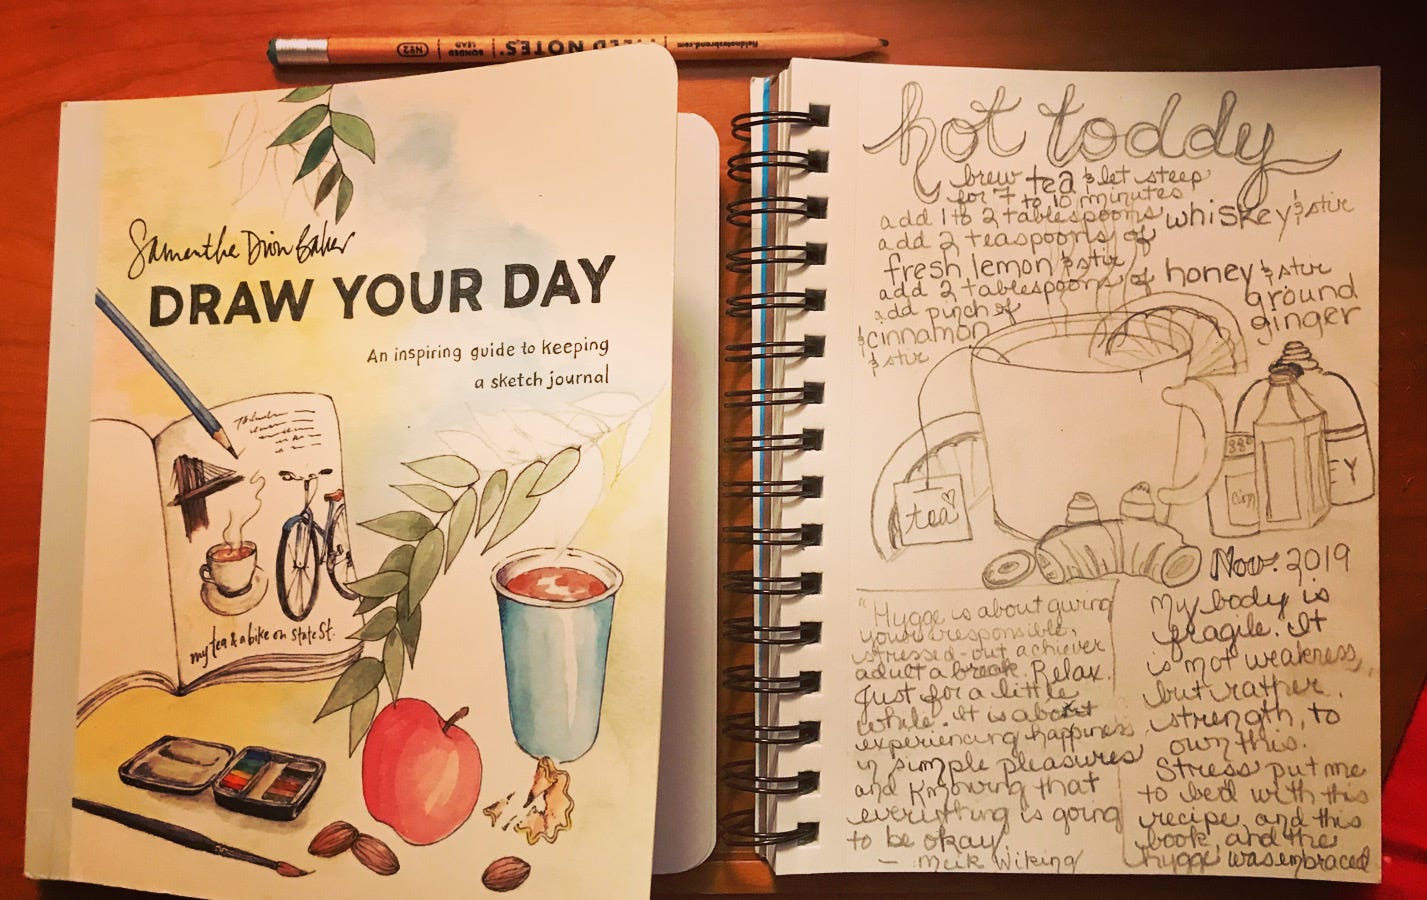 fieldnotesbrand.com
FIELD NOTES
BONDED
LEAD
No2
Samantha Dion Baker
DRAW YOUR DAY
An inspiring guide to keeping
a sketch journal
my tea & a bike on State St.
hot toddy
brew tea & let steep
for 7 to 10 minutes
add 1 to 2 tablespoons whiskey & stir
add 2 teaspoons of
fresh lemon & stir
add 2 tablespoons of honey & stir
add pinch of ground
& cinnamon ginger
& stir
tea
Cinn
EY
Nov. 2019
"Hygge is about giving
your responsible,
stressed-out achiever
adult a break. Relax.
Just for a little
while. It is about
experiencing happiness
in simple pleasures
and knowing that
everything is going
to be okay"
- Meik Wiking
My body is
fragile. It
is not weakness,
but rather
strength, to
own this.
Stress put me
to bed with this
recipe and this
book, and the
hygge was embraced